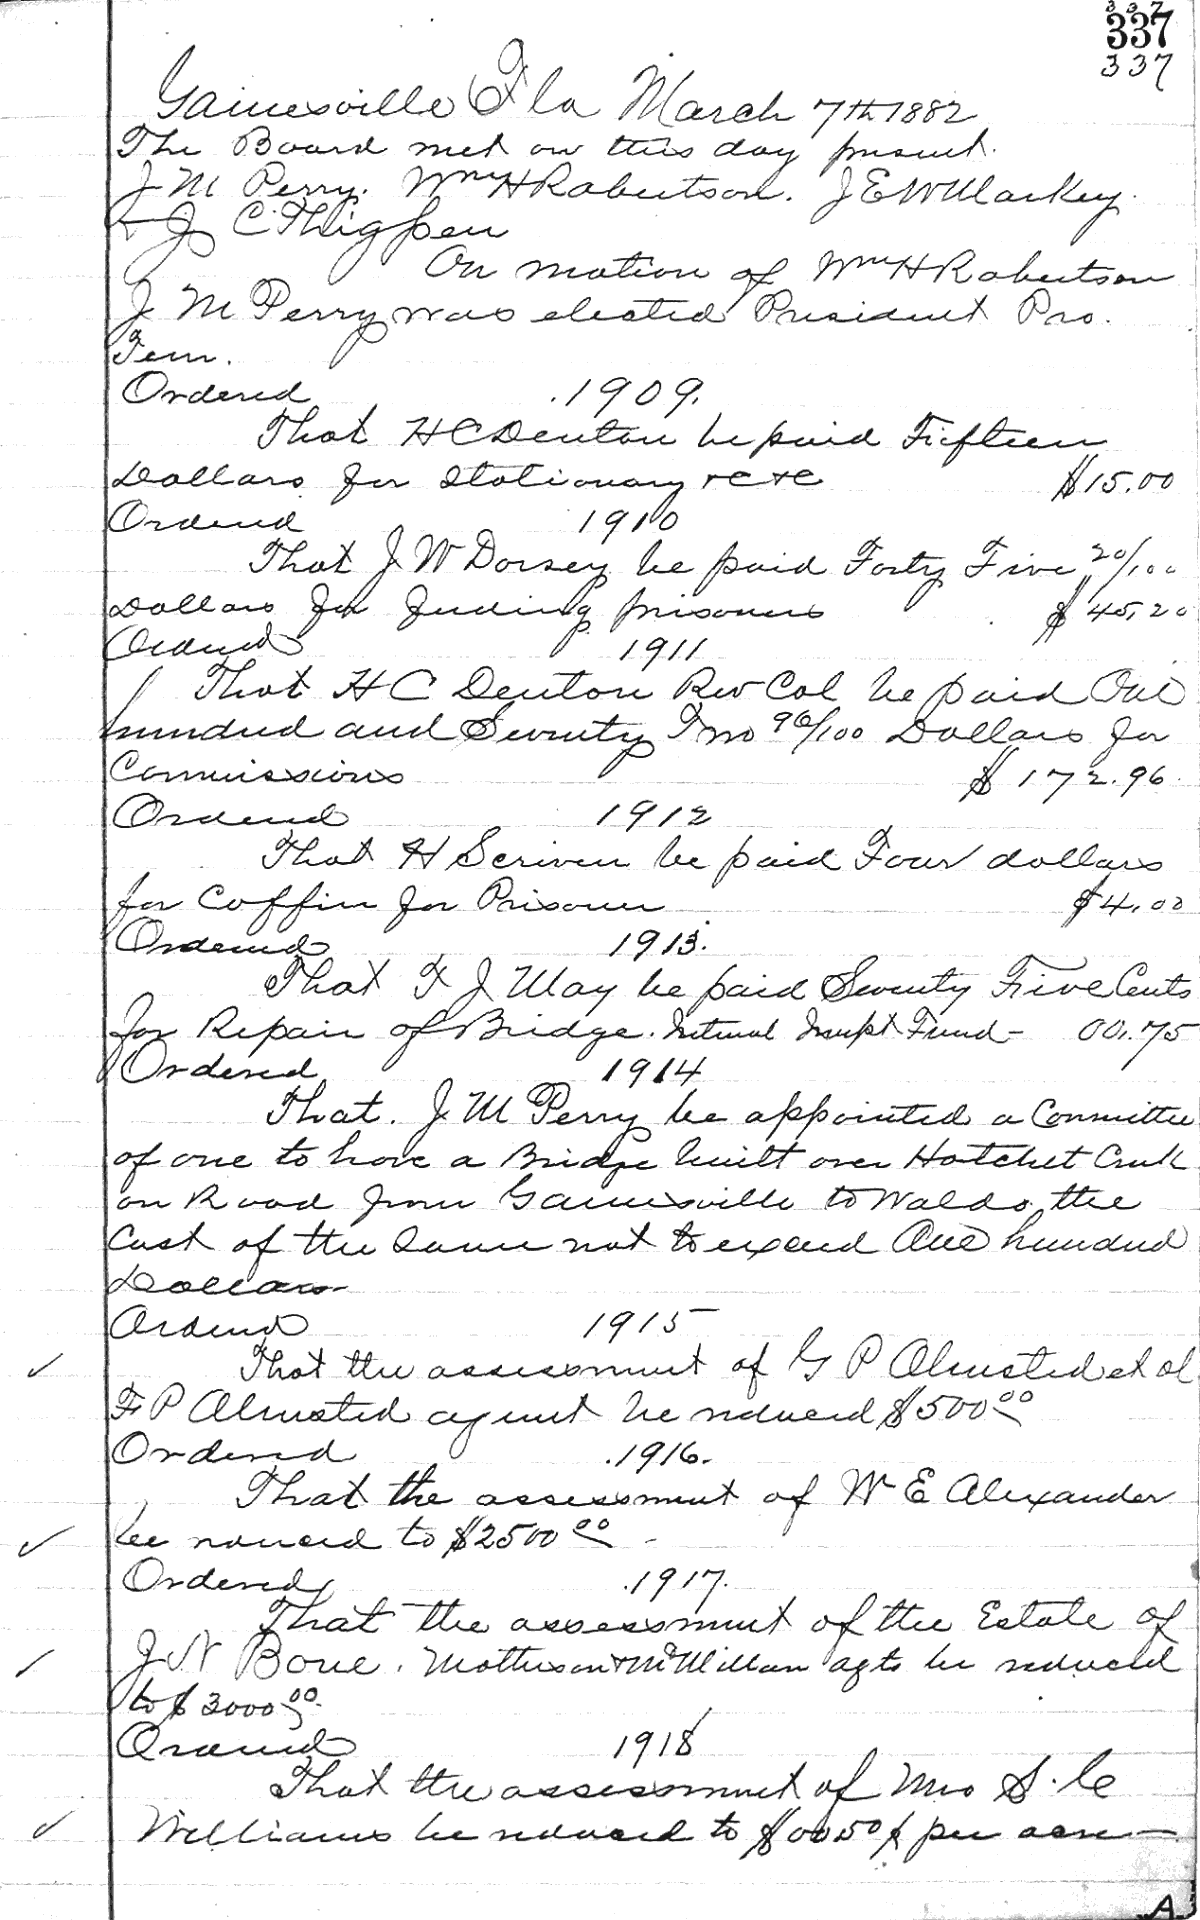 3 3 7
337
337
Gainesville Fla March 7th 1882
The Board met on this day present.
J M Perry. Wm H Robertson. J E W Markey.
+ J C Thigpen
On motion of Wm H Robertson
J M Perry was elected President Pro.
Tem.
Ordered 1909.
That H C Denton be paid Fifteen
Dollars for Stationary +c +c $15.00
Ordered 1910
That J W Dorsey be paid Forty Five 20/100
Dollars for feeding prisoners $45.20
Ordered 1911
That H C Denton Rev Col be paid One
hundred and Seventy Two 96/100 Dollars for
Commissions $172.96
Ordered 1912
That H Scriven be paid Four dollars
for Coffin for Prisoner $4.00
Ordered 1913.
That F J May be paid Seventy Five Cents
for Repair of Bridge. Fund - 00.75
Ordered 1914
That. J M Perry be appointed a Committee
of one to have a Bridge built over Hatchet Creek
on Road from Gainesville to Waldo the
Cost of the Same not to exceed One hundred
Dollars
Ordered 1915
That the assessment of G P Olmsted et al
F P Olmsted agent be reduced $500.00
Ordered .1916.
That the assessment of W E Alexander
be reduced to $2500.00
Ordered .1917.
That the assessment of the Estate of
J N Bone. Matheson & McMillan agts be reduced
to $3000.00
Ordered 1918
That the assessment of Mrs S. C
Williams be reduced to $00 50 ¢ per acre
A